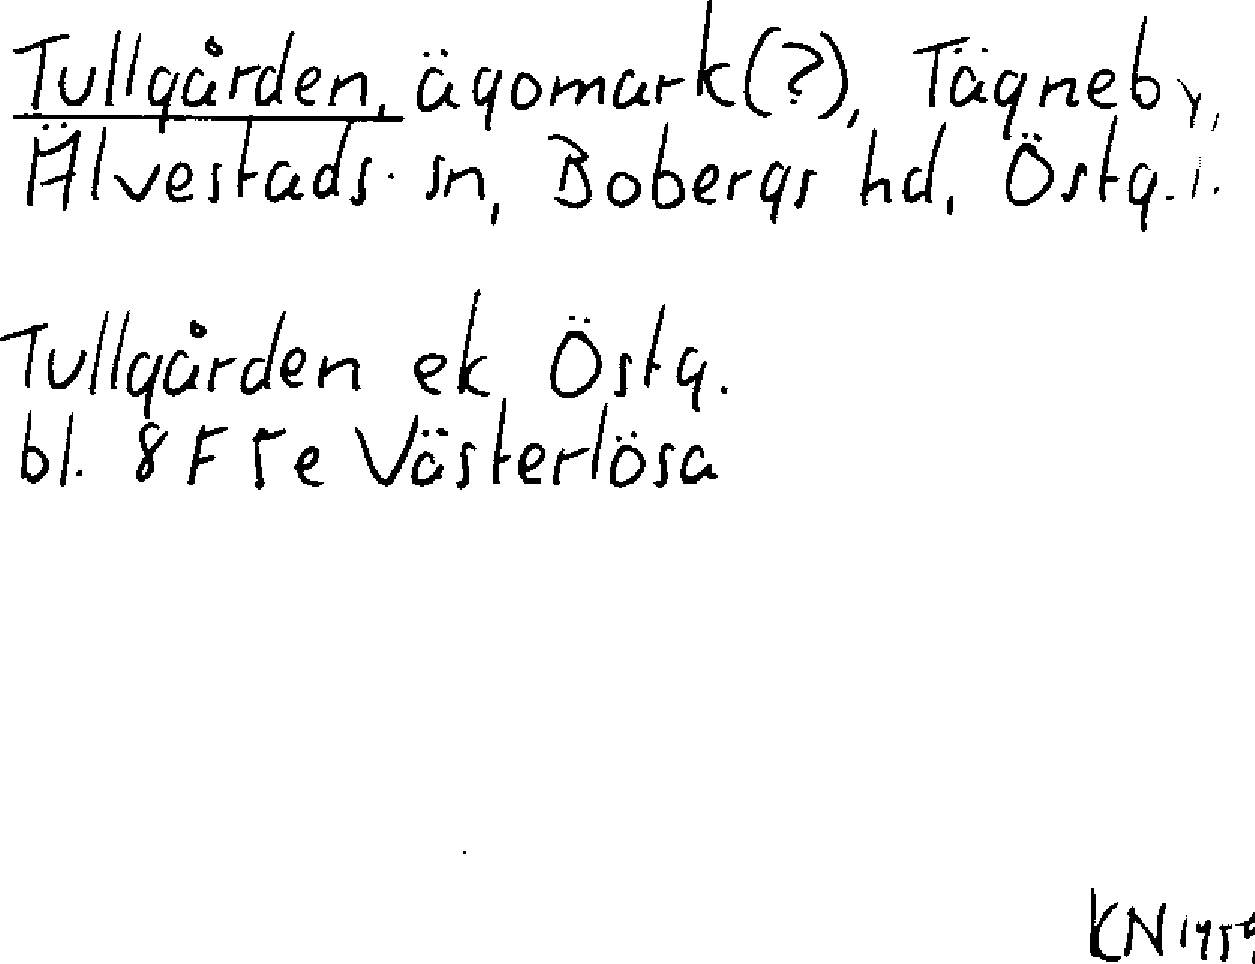 Tullgården, ägomark(?), Tägneby,
Älvestads sn, Bobergs hd, Östg. l.
Tullgården ek Östg.
bl. 8 F 5 e Västerlösa
KN 1959